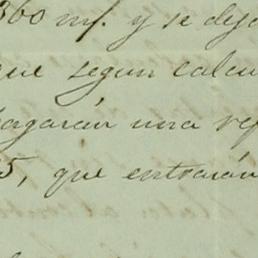 360 m/. y se dej
que segun calcu
pagarán una re
5, que entrarán